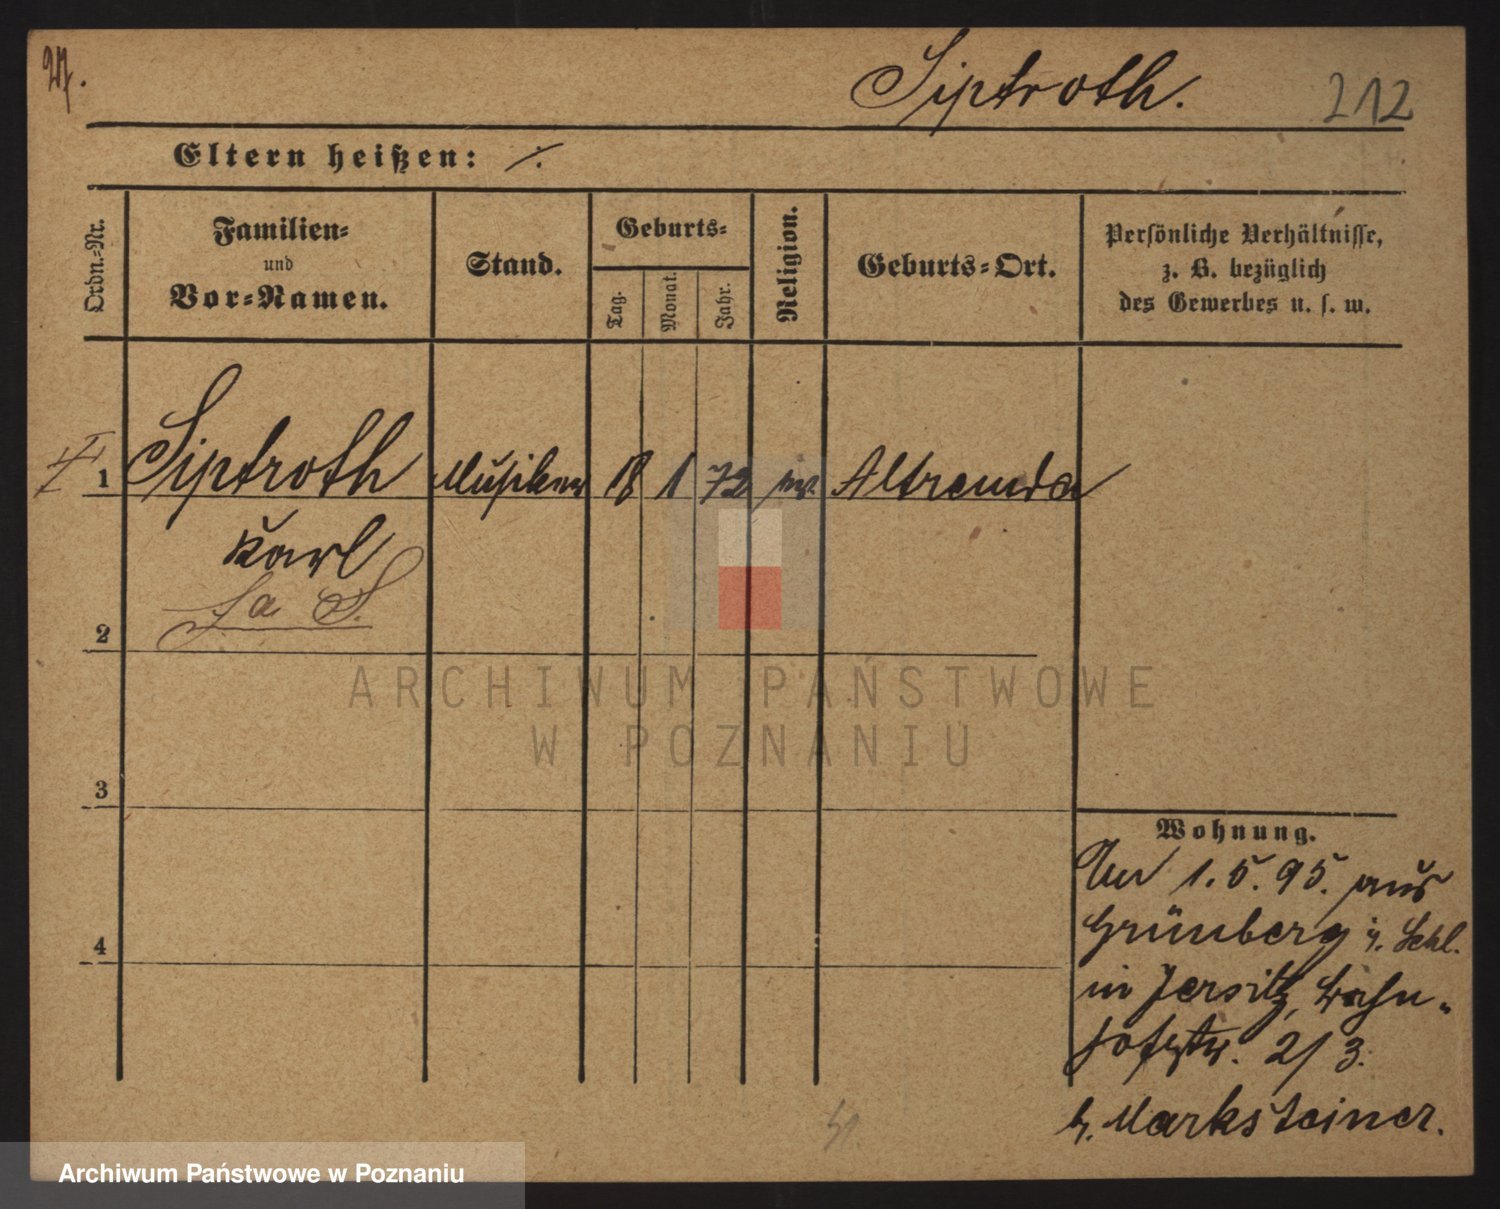 27.
Siptroth.
212
Eltern heißen: ./.
Ordn.-Nr.
Familien-
und
Vor-Namen.
Stand.
Geburts-
Tag.
Monat.
Jahr.
Religion.
Geburts-Ort.
Persönliche Verhältnisse,
z. B. bezüglich
des Gewerbes u. s. w.
1 Siptroth Musiker 18 1 72 Altremda
Karl
2
3
4
Wohnung.
1.5.95. aus
Grünberg i. Schl.
in Jersitz, Bahn-
hofstr. 2/3.
b. Marksteiner.
ARCHIWUM PAŃSTWOWE
W POZNANIU
Archiwum Państwowe w Poznaniu